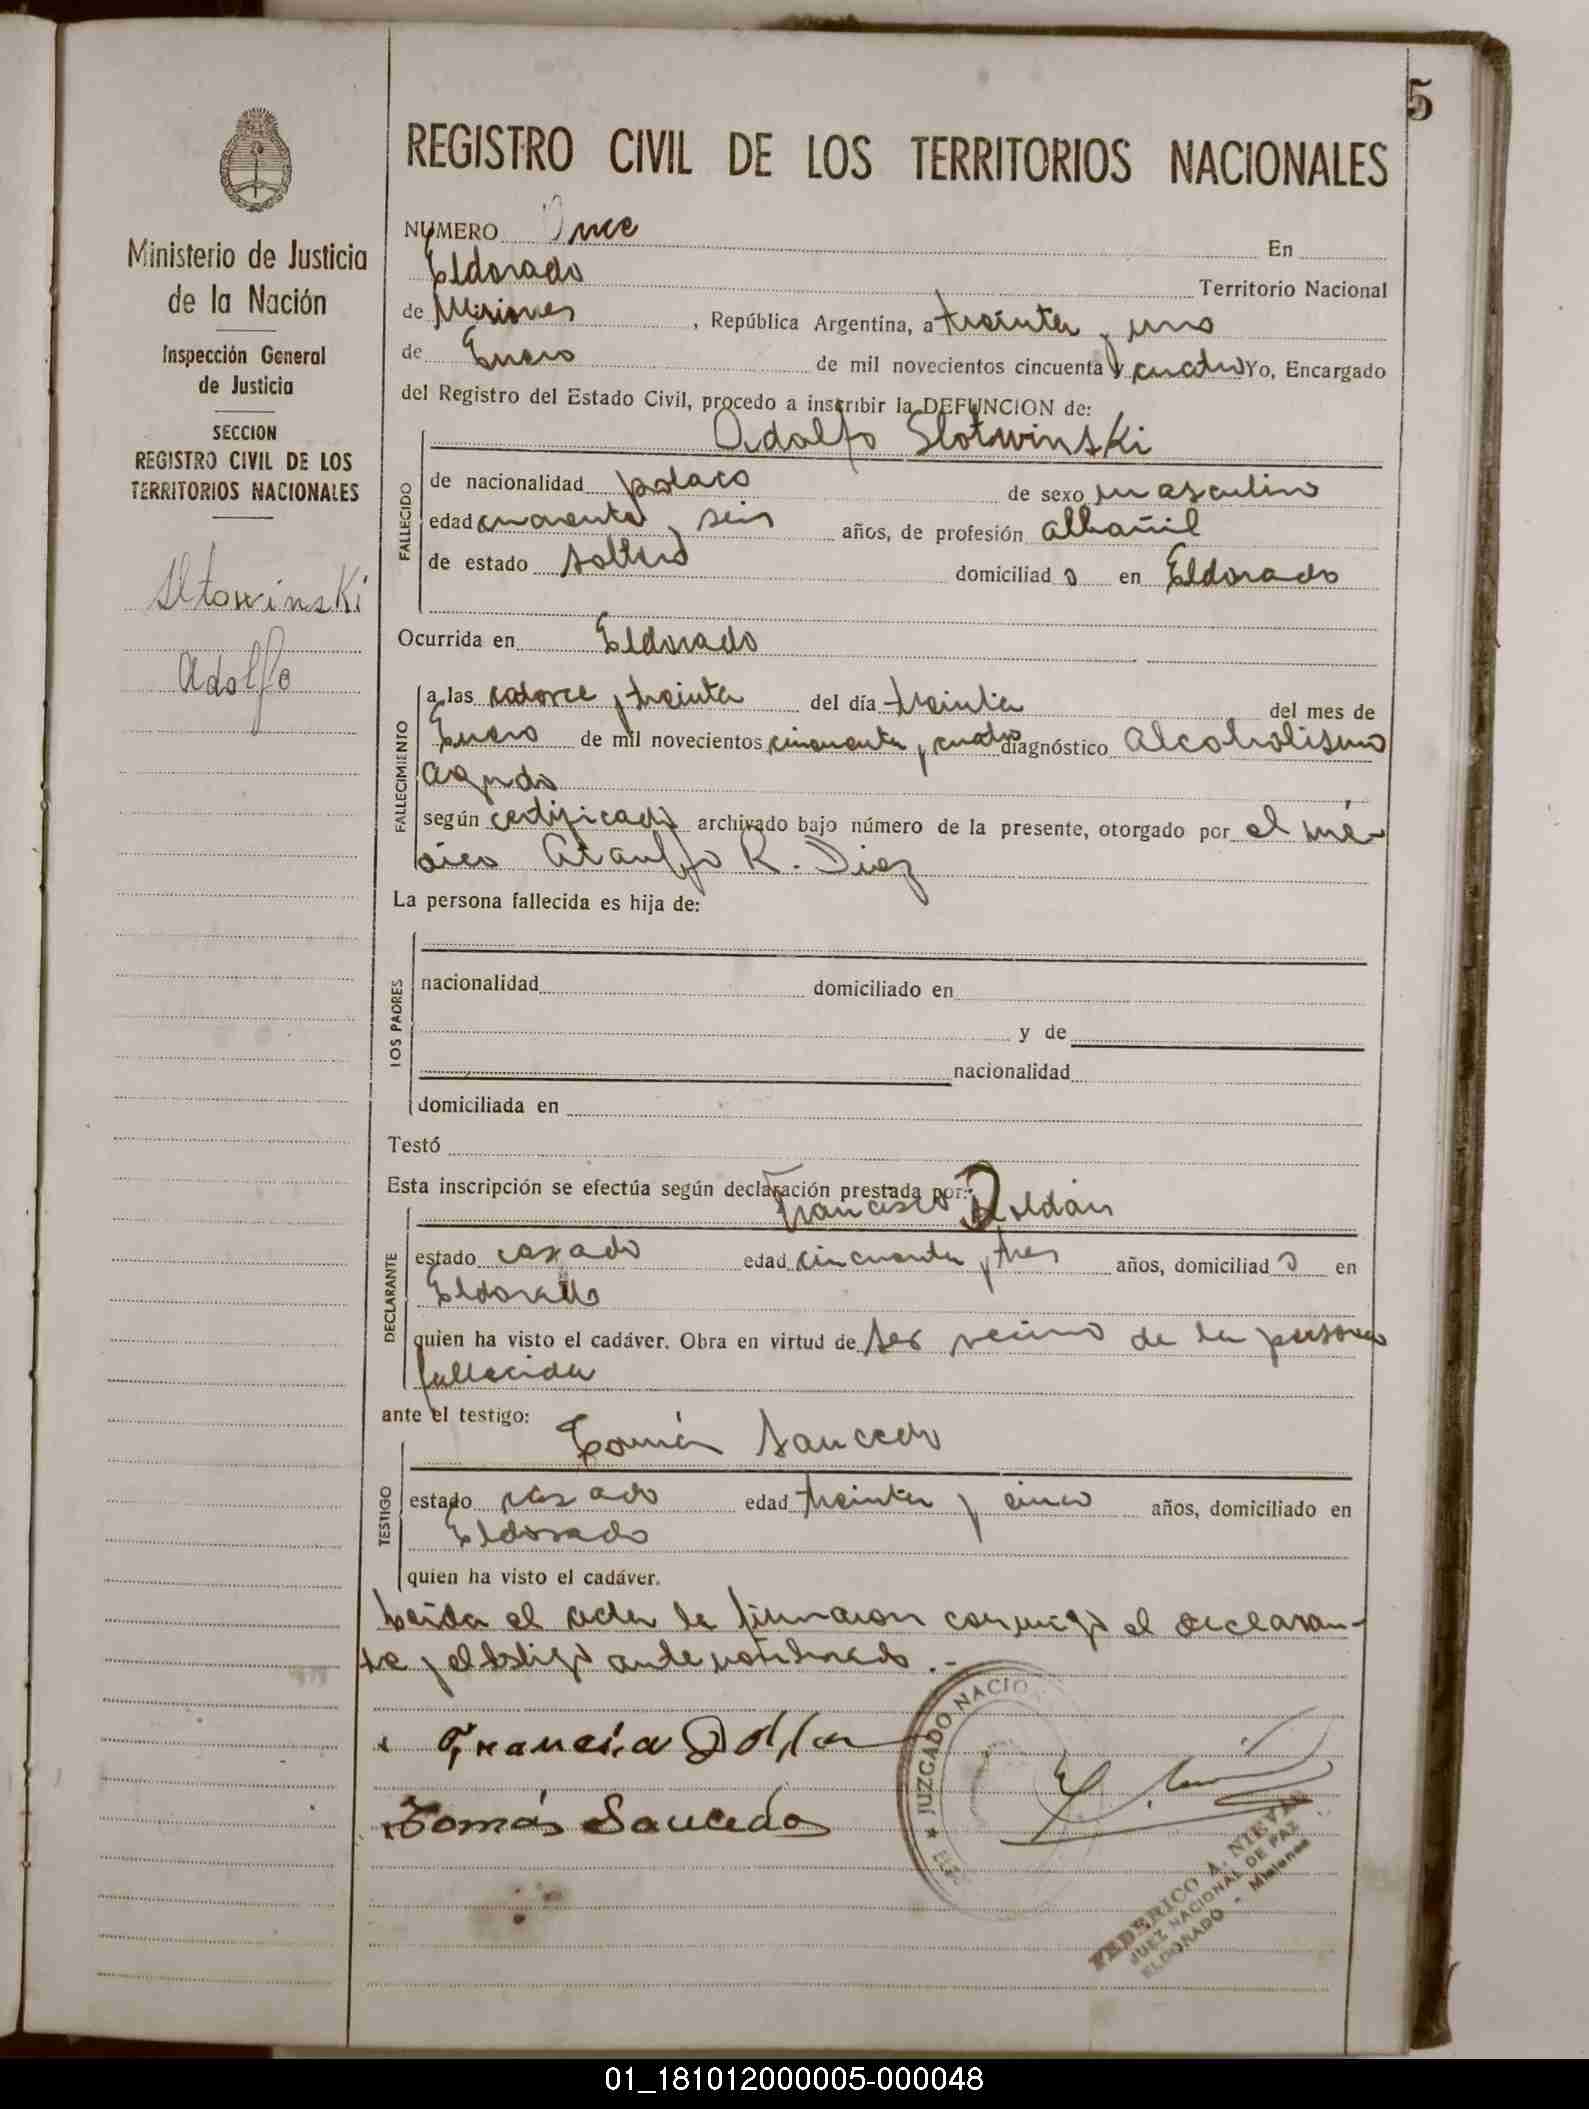 5
Ministerio de Justicia
de la Nación
Inspección General
de Justicia
SECCION
REGISTRO CIVIL DE LOS
TERRITORIOS NACIONALES
Sltowinski
Adolfo
REGISTRO CIVIL DE LOS TERRITORIOS NACIONALES
NUMERO Once En
Eldorado Territorio Nacional
de Misiones , República Argentina, a treinta y uno
de Enero de mil novecientos cincuenta y cuatro Yo, Encargado
del Registro del Estado Civil, procedo a inscribir la DEFUNCION de:
Adolfo Slotwinski
FALLECIDO
de nacionalidad polaco de sexo masculino
edad cuarenta y seis años, de profesión albañil
de estado soltero domiciliad o en Eldorado
Ocurrida en Eldorado
FALLECIMIENTO
a las catorce y treinta del día treinta del mes de
Enero de mil novecientos cincuenta y cuatro diagnóstico Alcoholismo
agudo
según certificado archivado bajo número de la presente, otorgado por el mé-
dico Ataulfo R. Diez
La persona fallecida es hija de:
LOS PADRES
nacionalidad domiciliado en
y de
nacionalidad
domiciliada en
Testó
Esta inscripción se efectúa según declaración prestada por:
Francisco Roldán
DECLARANTE
estado casado edad cincuenta y tres años, domiciliad o en
Eldorado
quien ha visto el cadáver. Obra en virtud de ser vecino de la persona
fallecida
ante el testigo:
Tomás Saucedo
TESTIGO
estado casado edad treinta y cinco años, domiciliado en
Eldorado
quien ha visto el cadáver.
Leida el acta la firmaron conmigo el declaran-
te y el testigo antenombrado.-
JUZGADO NACIO
Tomás Saucedo
FEDERICO A. NIEVAS
JUEZ NACIONAL DE PAZ
ELDORADO - Misiones
01_181012000005-000048